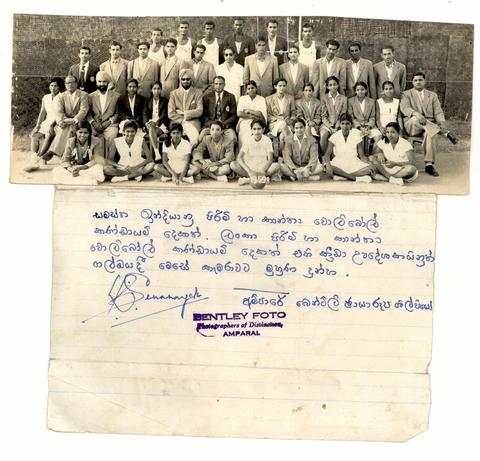 1959
සමස්ත ඉන්දියානු පිරිමි හා කාන්තා වොලිබෝල්
කණ්ඩායම් දෙකත්, ලංකා පිරිමි හා කාන්තා
වොලිබෝල් කණ්ඩායම් දෙකත් එහි ක්‍රීඩා උපදේශකයිනුත්
ගල්ඔයදී මෙසේ කැමරාවට මුහුණ දුන්හ.
Senanayeke
අම්පාරේ බෙන්ට්ලි ඡායාරූප ශිල්පියෝ
BENTLEY FOTO
Photographers of Distinction,
AMPARAI